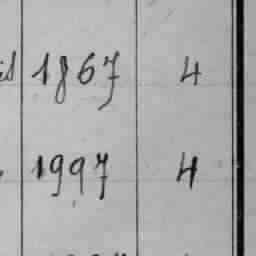 1867 4
1997 4